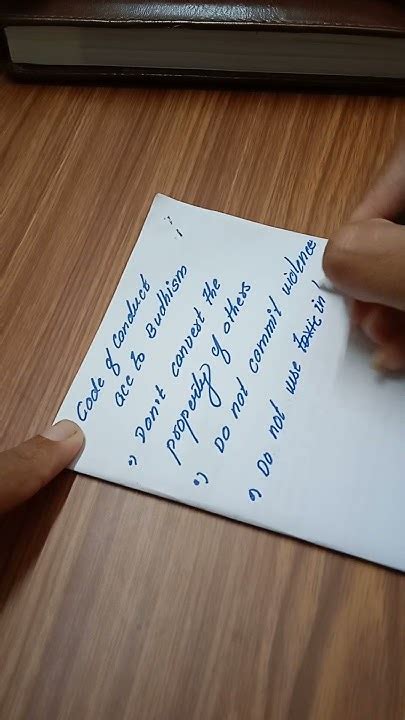 Code of Conduct
acc to Budhism
•) Don't convest the
property of others
•) Do not commit violence
•) Do not use toxic in